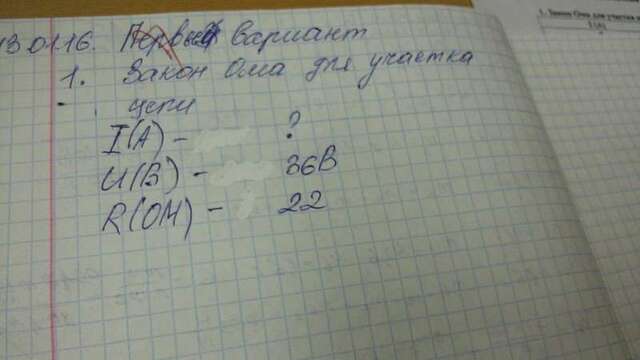 13.01.16. Первый вариант
1. Закон Ома для участка
цепи
I(А) - ?
U(В) - 36В
R(ОМ) - 22
1. Закон Ома для участка